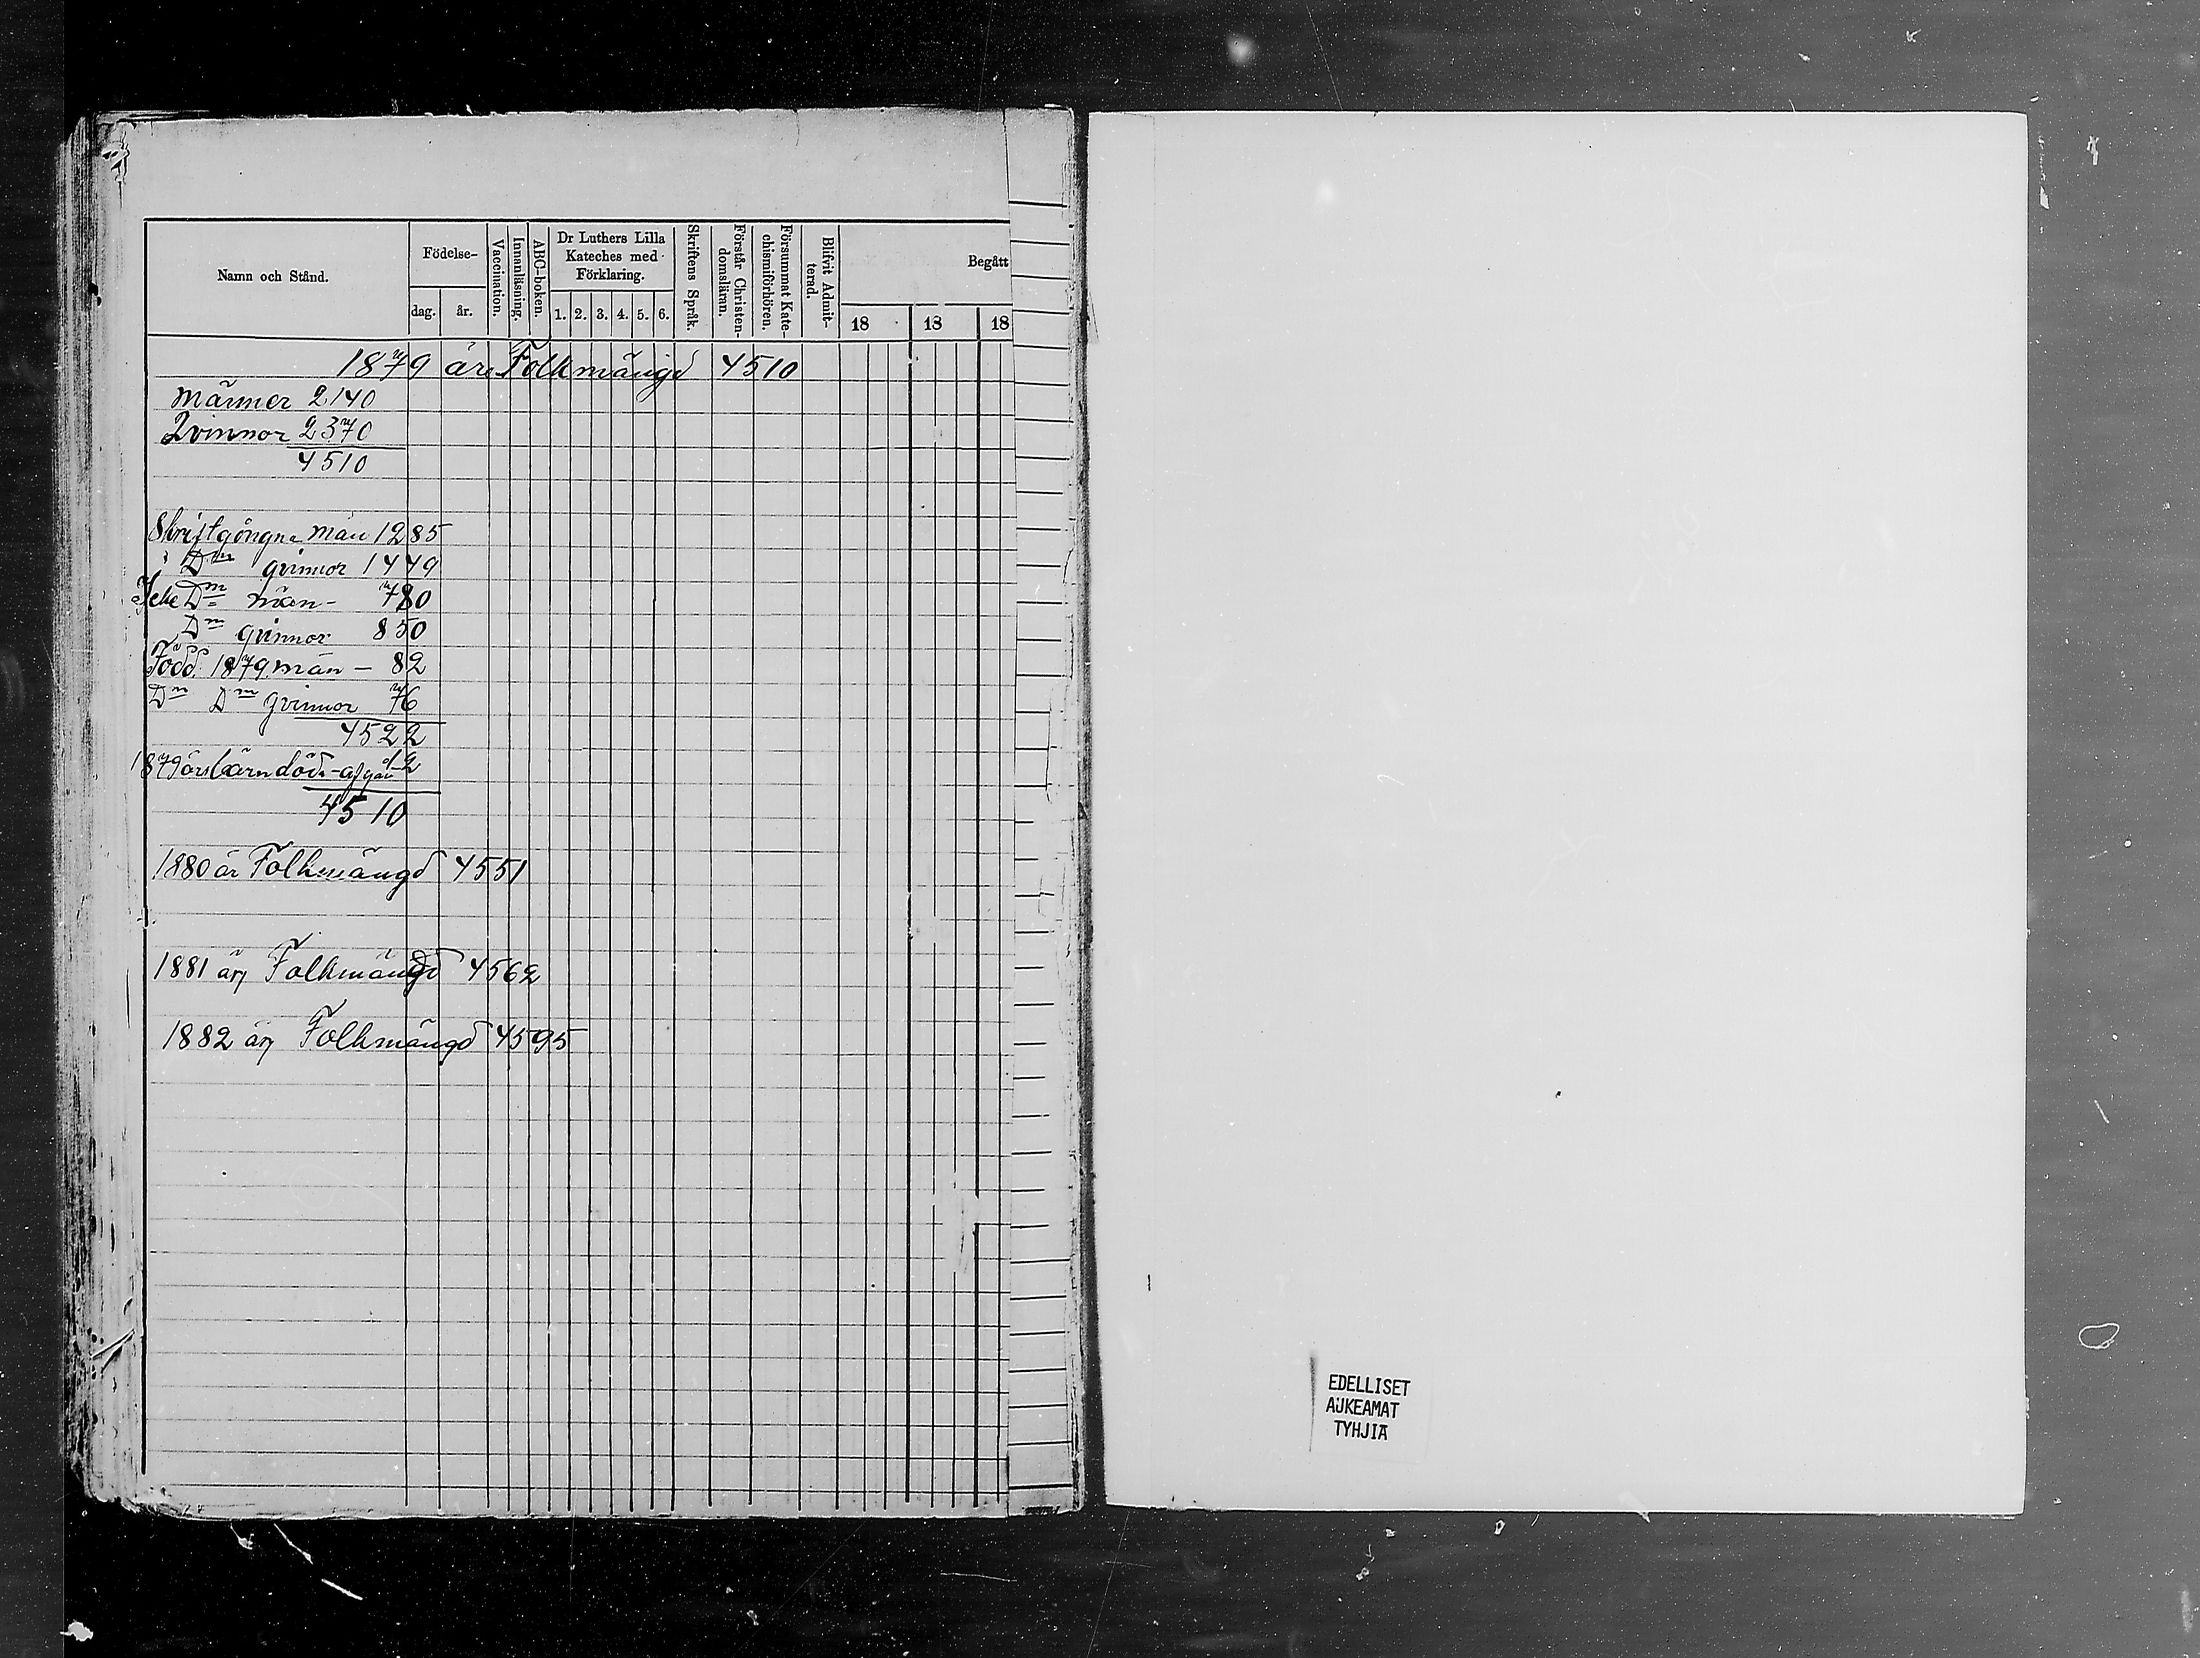 Namn och Stånd.
Födelse-
dag.
år.
Vaccination.
Innanläsning.
ABC-boken.
Dr Luthers Lilla
Kateches med
Förklaring.
1. 2. 3. 4. 5. 6.
Skriftens Språk.
Förstår Christen-
domsläran.
Försummat Kate-
chismiförhören.
Blifvit Admit-
terad.
Begått
18 18 18
1879 års Folkmängd 4510
männer 2140
Qvinnor 2370
4510
Skriftgångna män 1285
Dm qvinnor 1449
Icke Dm män - 780
Dm qvinnor 850
Född. 1879 män - 82
Dm Dm qvinnor 76
4522
1879 års barn döda - afgår 12
4510
1880 år Folkmängd 4551
1881 år Folkmängd 4562
1882 år Folkmängd 4595
EDELLISET
AUKEAMAT
TYHJIÄ